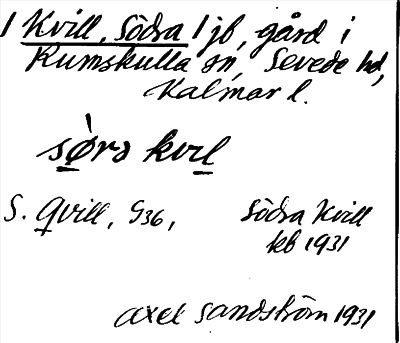 1 Kvill, Södra 1 jb, gård i
Rumskulla sn, Sevede hd,
Kalmar l.
sø̀rə kvil
S. Qvill, G36, Södra Kvill
kb 1931
Axel Sandström 1931